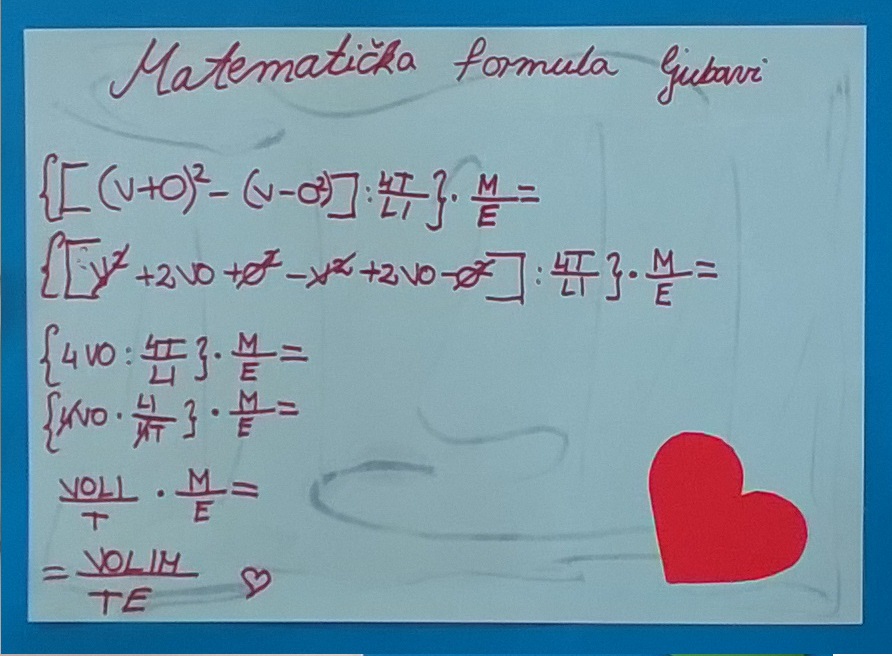 Matematička formula ljubavi
{[(V+O)² - (V-O²)] : 4T/LI} · M/E =
{[V² + 2VO + O² - V² + 2VO - O²] : 4T/LI} · M/E =
{4VO : 4T/LI} · M/E =
{4VO · LI/4T} · M/E =
VOLI/T · M/E =
= VOLIM/TE ♡